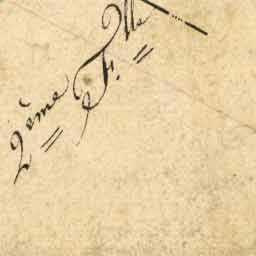 2ème F.lle